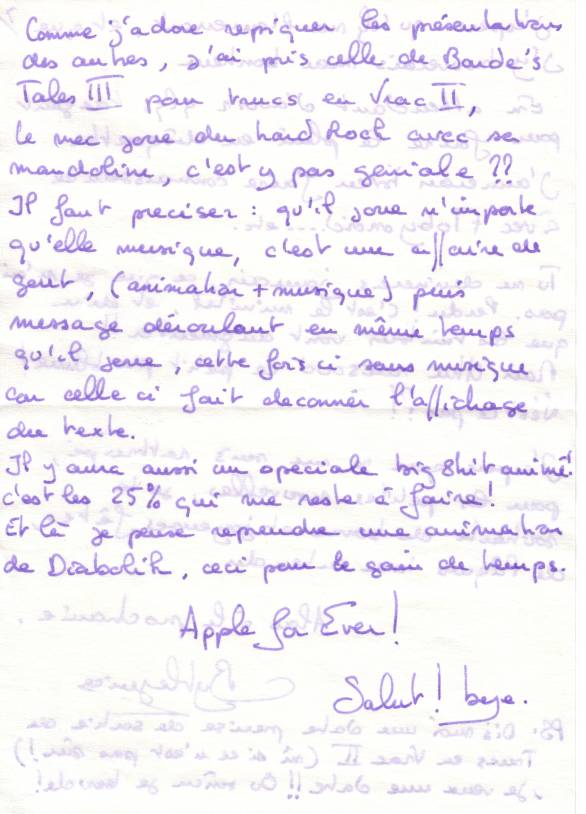 Comme j'adore repiquer les présentations
des autres, j'ai pris celle de Barde's
Tales III pour trucs en Vrac II,
le mec joue du hard Rock avec sa
mandoline, c'est y pas geniale ??
Il faut preciser : qu'il joue n'importe
qu'elle musique, c'est une affaire de
gout, (animation + musique) puis
message déroulant en même temps
qu'il joue, cette fois ci sans musique
car celle ci fait deconner l'affichage
du texte.
Il y aura aussi un speciale big Shit animé!
c'est les 25% qui me reste à faire!
Et là je pense reprendre une animation
de Diabolik, ceci pour le gain de temps.
Apple for Ever!
Salut! bye.